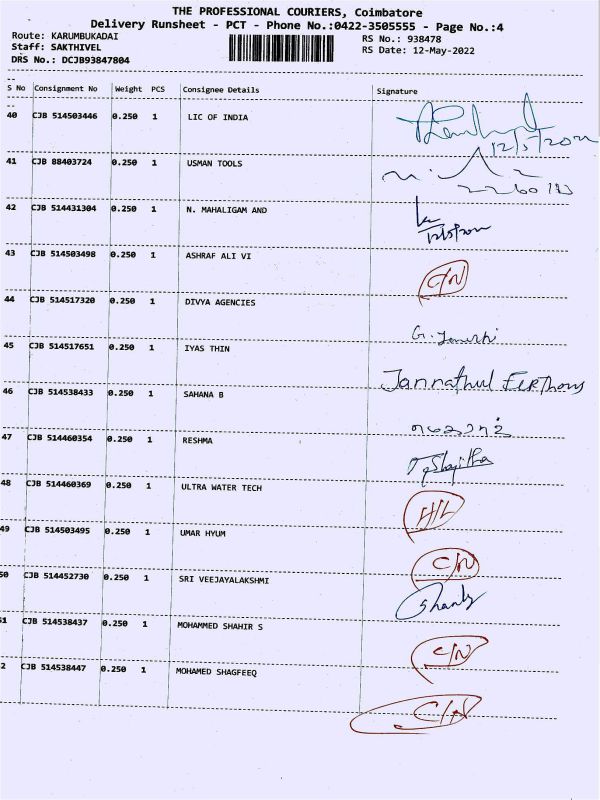 THE PROFESSIONAL COURIERS, Coimbatore
Delivery Runsheet - PCT - Phone No.:0422-3505555 - Page No.:4
Route: KARUMBUKADAI RS No.: 938478
Staff: SAKTHIVEL RS Date: 12-May-2022
DRS No.: DCJB93847804
S No Consignment No Weight PCS Consignee Details Signature
40 CJB 514503446 0.250 1 LIC OF INDIA
12/5/2022
41 CJB 88403724 0.250 1 USMAN TOOLS
42 CJB 514431304 0.250 1 N. MAHALIGAM AND
43 CJB 514503498 0.250 1 ASHRAF ALI VI C/N
44 CJB 514517320 0.250 1 DIVYA AGENCIES G.
45 CJB 514517651 0.250 1 IYAS THIN Jannathul Firthous
46 CJB 514538433 0.250 1 SAHANA B
47 CJB 514460354 0.250 1 RESHMA
48 CJB 514460369 0.250 1 ULTRA WATER TECH
49 CJB 514503495 0.250 1 UMAR HYUM C/N
50 CJB 514452730 0.250 1 SRI VEEJAYALAKSHMI
51 CJB 514538437 0.250 1 MOHAMMED SHAHIR S C/N
2 CJB 514538447 0.250 1 MOHAMED SHAGFEEQ C/N